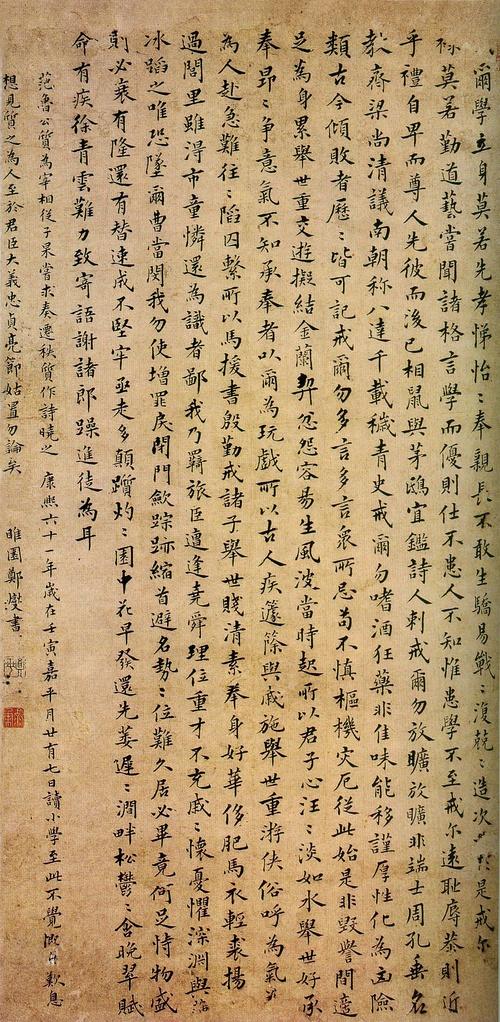 爾學立身莫若先孝悌怡〻奉親長不敢生驕易戰〻復兢〻造次必於是戒尔
莫若勤道藝嘗聞諸格言學而優則仕不患人不知惟患學不至戒尔遠恥辱恭則近
乎禮自卑而尊人先彼而後己相鼠與茅鴟宜鑑詩人刺戒爾勿放曠放曠非端士周孔垂名
教齊梁尚清議南朝称八達千載穢青史戒爾勿嗜酒狂藥非佳味能移謹厚性化為凶險
類古今傾敗者歷〻皆可記戒爾勿多言多言衆所忌苟不慎樞機灾厄從此始是非毀譽間適
足為身累舉世重交遊擬結金蘭契忿怨容易生風波當時起所以君子心汪〻淡如水舉世好承
奉昂〻争意氣不知承奉者以爾為玩戲所以古人疾籧篨與戚施舉世重游俠俗呼為氣
為人赴急難往〻陷囚繫所以馬援書殷勤戒諸子舉世賤清素奉身好華侈肥馬衣輕裘揚
過閭里雖得市童憐還為識者鄙我乃羇旅臣遭逢堯舜理位重才不充戚〻懷憂懼深淵與
冰蹈之唯恐墜爾曹當閔我勿使增罪戾閉門歛踪跡縮首避名勢〻位難久居必畢竟何足恃物盛
則必衰有隆還有替速成不堅牢亟走多顛躓灼〻園中花早發還先萎遲〻澗畔松鬱〻含晚翠賦
命有疾徐青雲難力致寄語謝諸郎躁進徒為耳
范魯公質為宰相從子杲嘗求奏遷秩質作詩曉之 康熙六十一年歲在壬寅嘉平月廿有七日讀小學至此不覺慨然歎息
想見質之為人至於君臣大義忠貞亮節姑置勿論矣 睢園鄭燮書